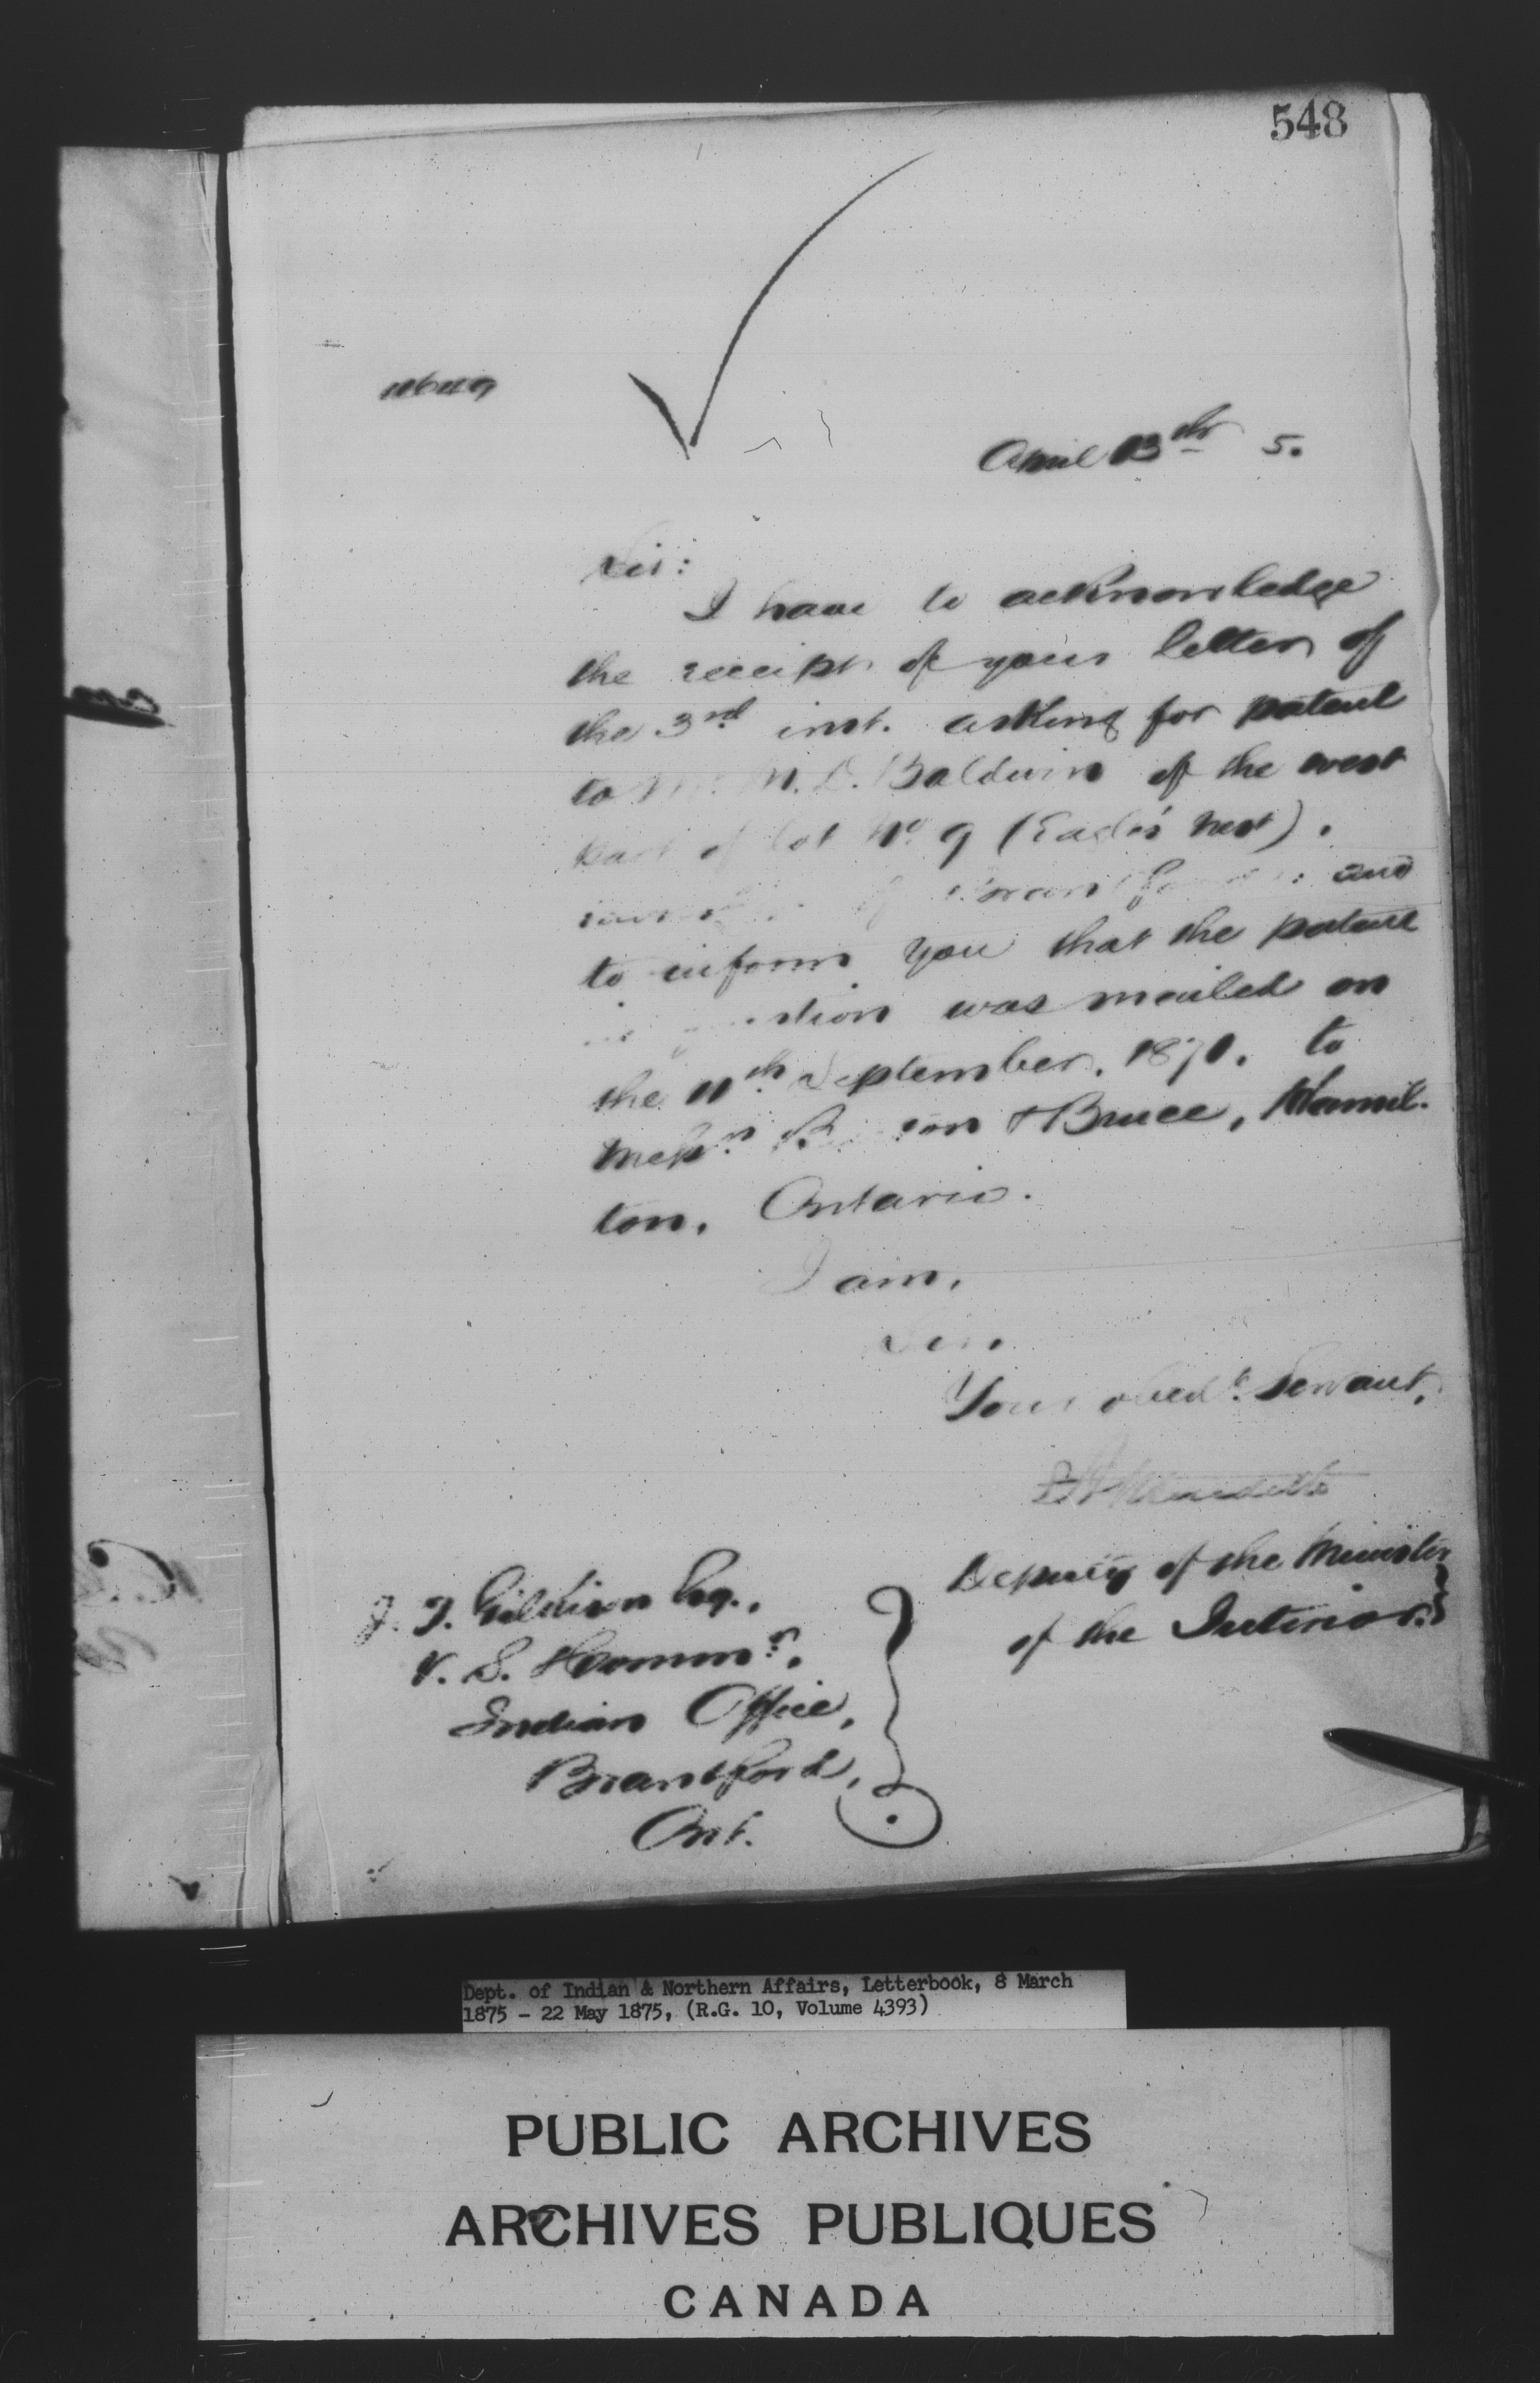 548
April 13th 5.
Sir:
I have to acknowledge
the receipt of your letter of
the 3rd inst. asking for patent
to Mr. W. D. Baldwin of the west
part of lot No 9 (Eagle's nest).
and
to inform you that the patent
in question was mailed on
the 11th September, 1871. to
Messrs. & Bruce, Hamil-
ton, Ontario.
I am,
Sir,
Your obedt. Servant,
Deputy of the Minister
of the Interior.
J. T. Gilkison Esq.,
V. S. Commr.,
Indian Office,
Brantford,
Ont.
Dept. of Indian & Northern Affairs, Letterbook, 8 March
1875 - 22 May 1875, (R.G. 10, Volume 4393)
PUBLIC ARCHIVES
ARCHIVES PUBLIQUES
CANADA